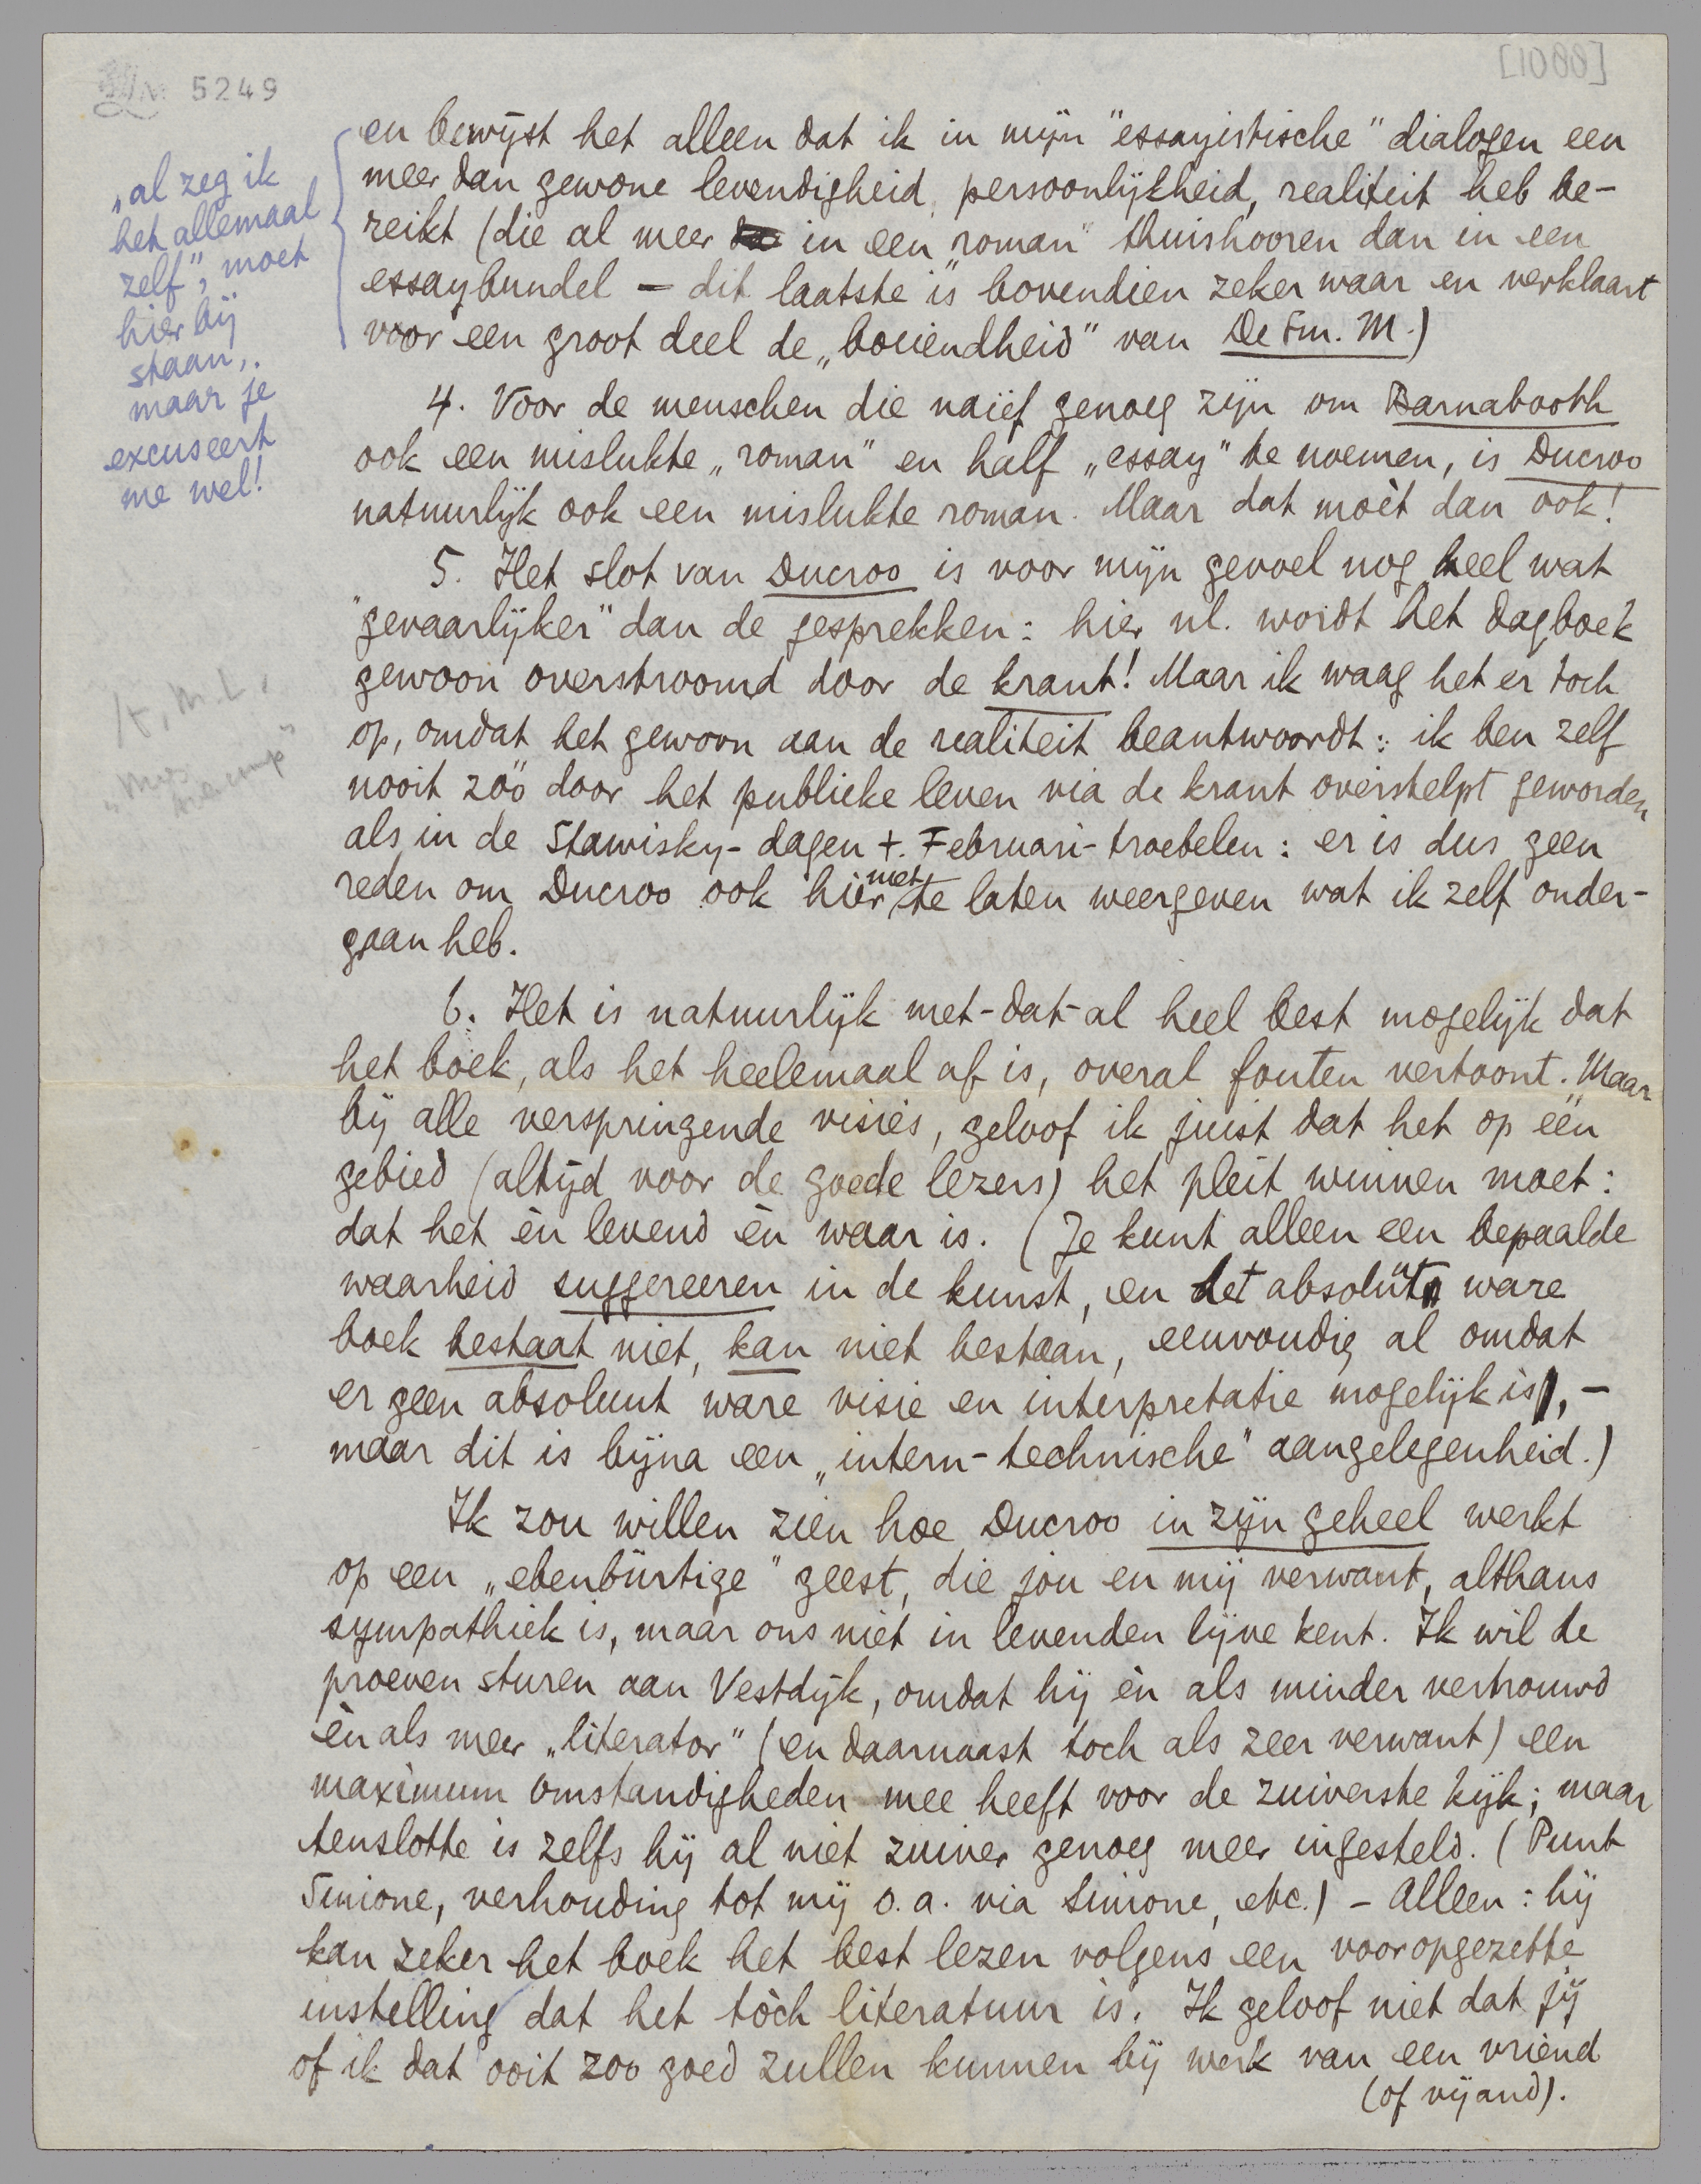 5249
[1000]
en bewijst het alleen dat ik in mijn "essayistische" dialogen een
meer dan gewone levendigheid, persoonlijkheid, realiteit heb be-
reikt (die al meer in een "roman" thuishooren dan in een
essaybundel — dit laatste is bovendien zeker waar en verklaart
voor een groot deel de „boeiendheid" van De Sm. M.)
„al zeg ik
het allemaal
zelf", moet
hier bij
staan,.
maar je
excuseert
me wel!
4. Voor de menschen die naïef genoeg zijn om Barnabooth
ook een mislukte „roman" en half „essay" te noemen, is Ducroo
natuurlijk ook een mislukte roman. Maar dat moèt dan ook!
5. Het slot van Ducroo is voor mijn gevoel nog heel wat
"gevaarlijker" dan de gesprekken: hier nl. wordt het dagboek
gewoon overstroomd door de krant! Maar ik waag het er toch
op, omdat het gewoon aan de realiteit beantwoordt: ik ben zelf
nooit zóó door het publieke leven via de krant overstelpt geworden
als in de Stawisky-dagen +. Februari-troebelen: er is dus geen
reden om Ducroo ook hier niet te laten weergeven wat ik zelf onder-
gaan heb.
6. Het is natuurlijk met-dat-al heel best mogelijk dat
het boek, als het heelemaal af is, overal fouten vertoont. Maar
bij alle verspringende visies, geloof ik juist dat het op één
gebied (altijd voor de goede lezers) het pleit winnen moet:
dat het èn levend èn waar is. (Je kunt alleen een bepaalde
waarheid suggereeren in de kunst, en het absoluut ware
boek bestaat niet, kan niet bestaan, eenvoudig al omdat
er geen absoluut ware visie en interpretatie mogelijk is, —
maar dit is bijna een „intern-technische" aangelegenheid.)
Ik zou willen zien hoe Ducroo in zijn geheel werkt
op een „ebenbürtige" geest, die jou en mij verwant, althans
sympathiek is, maar ons niet in levenden lijve kent. Ik wil de
proeven sturen aan Vestdijk, omdat hij èn als minder vertrouwd
èn als meer „literator" (en daarnaast toch als zeer verwant) een
maximum omstandigheden mee heeft voor de zuiverste kijk; maar
tenslotte is zelfs hij al niet zuiver genoeg meer ingesteld. (Punt
Simone, verhouding tot mij o.a. via Simone, etc.) – Alleen: hij
kan zeker het boek het best lezen volgens een vooropgezette
instelling dat het tòch literatuur is. Ik geloof niet dat jij
of ik dat ooit zoo goed zullen kunnen bij werk van een vriend
(of vijand).